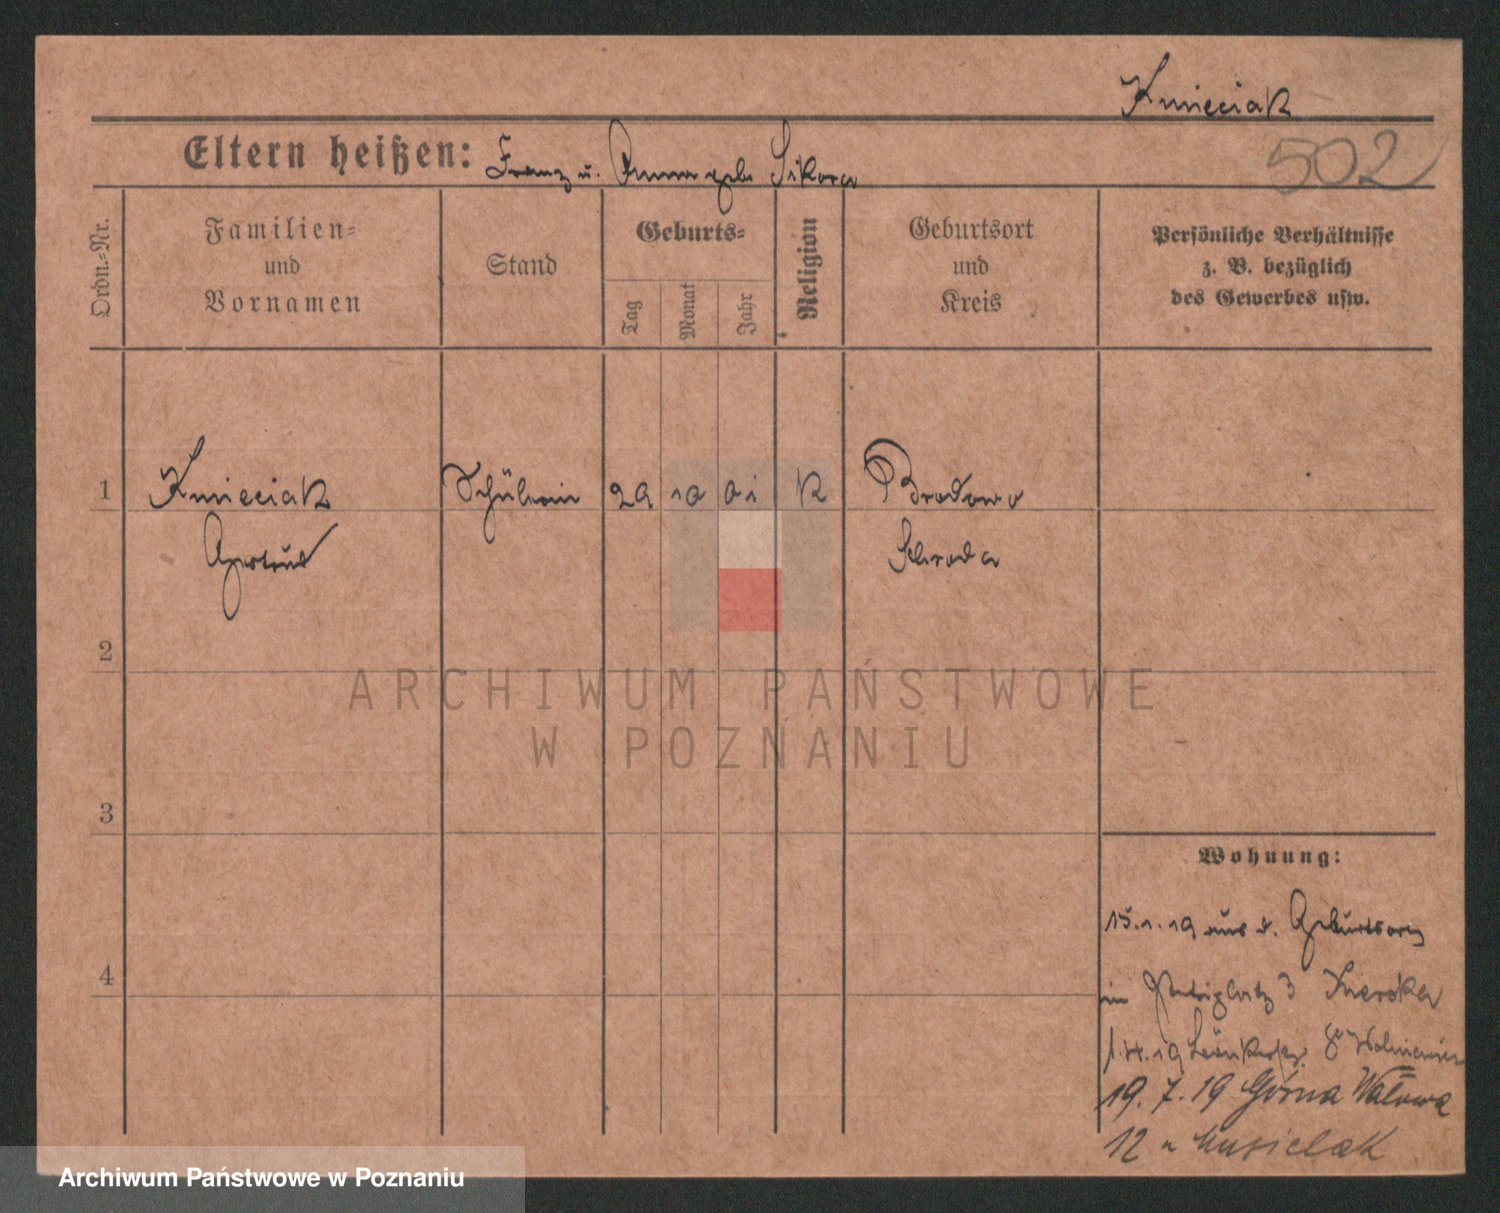 Kmieciak
502
Eltern heißen: Franz u. Anna geb. Sikora
Ordn.-Nr.
Familien-
und
Vornamen
Stand
Geburts-
Tag
Monat
Jahr
Religion
Geburtsort
und
Kreis
Persönliche Verhältnisse
z. B. bezüglich
des Gewerbes usw.
1 Kmieciak Schülerin 29 10 01 K Brodowo
Gertrud Schroda
2
3
4
Wohnung:
15.1.19 aus d. Geburtsort
in 3
1.4.19 8
19.7.19 Górna Wałowa
12 Musielak
ARCHIWUM PAŃSTWOWE
W POZNANIU
Archiwum Państwowe w Poznaniu